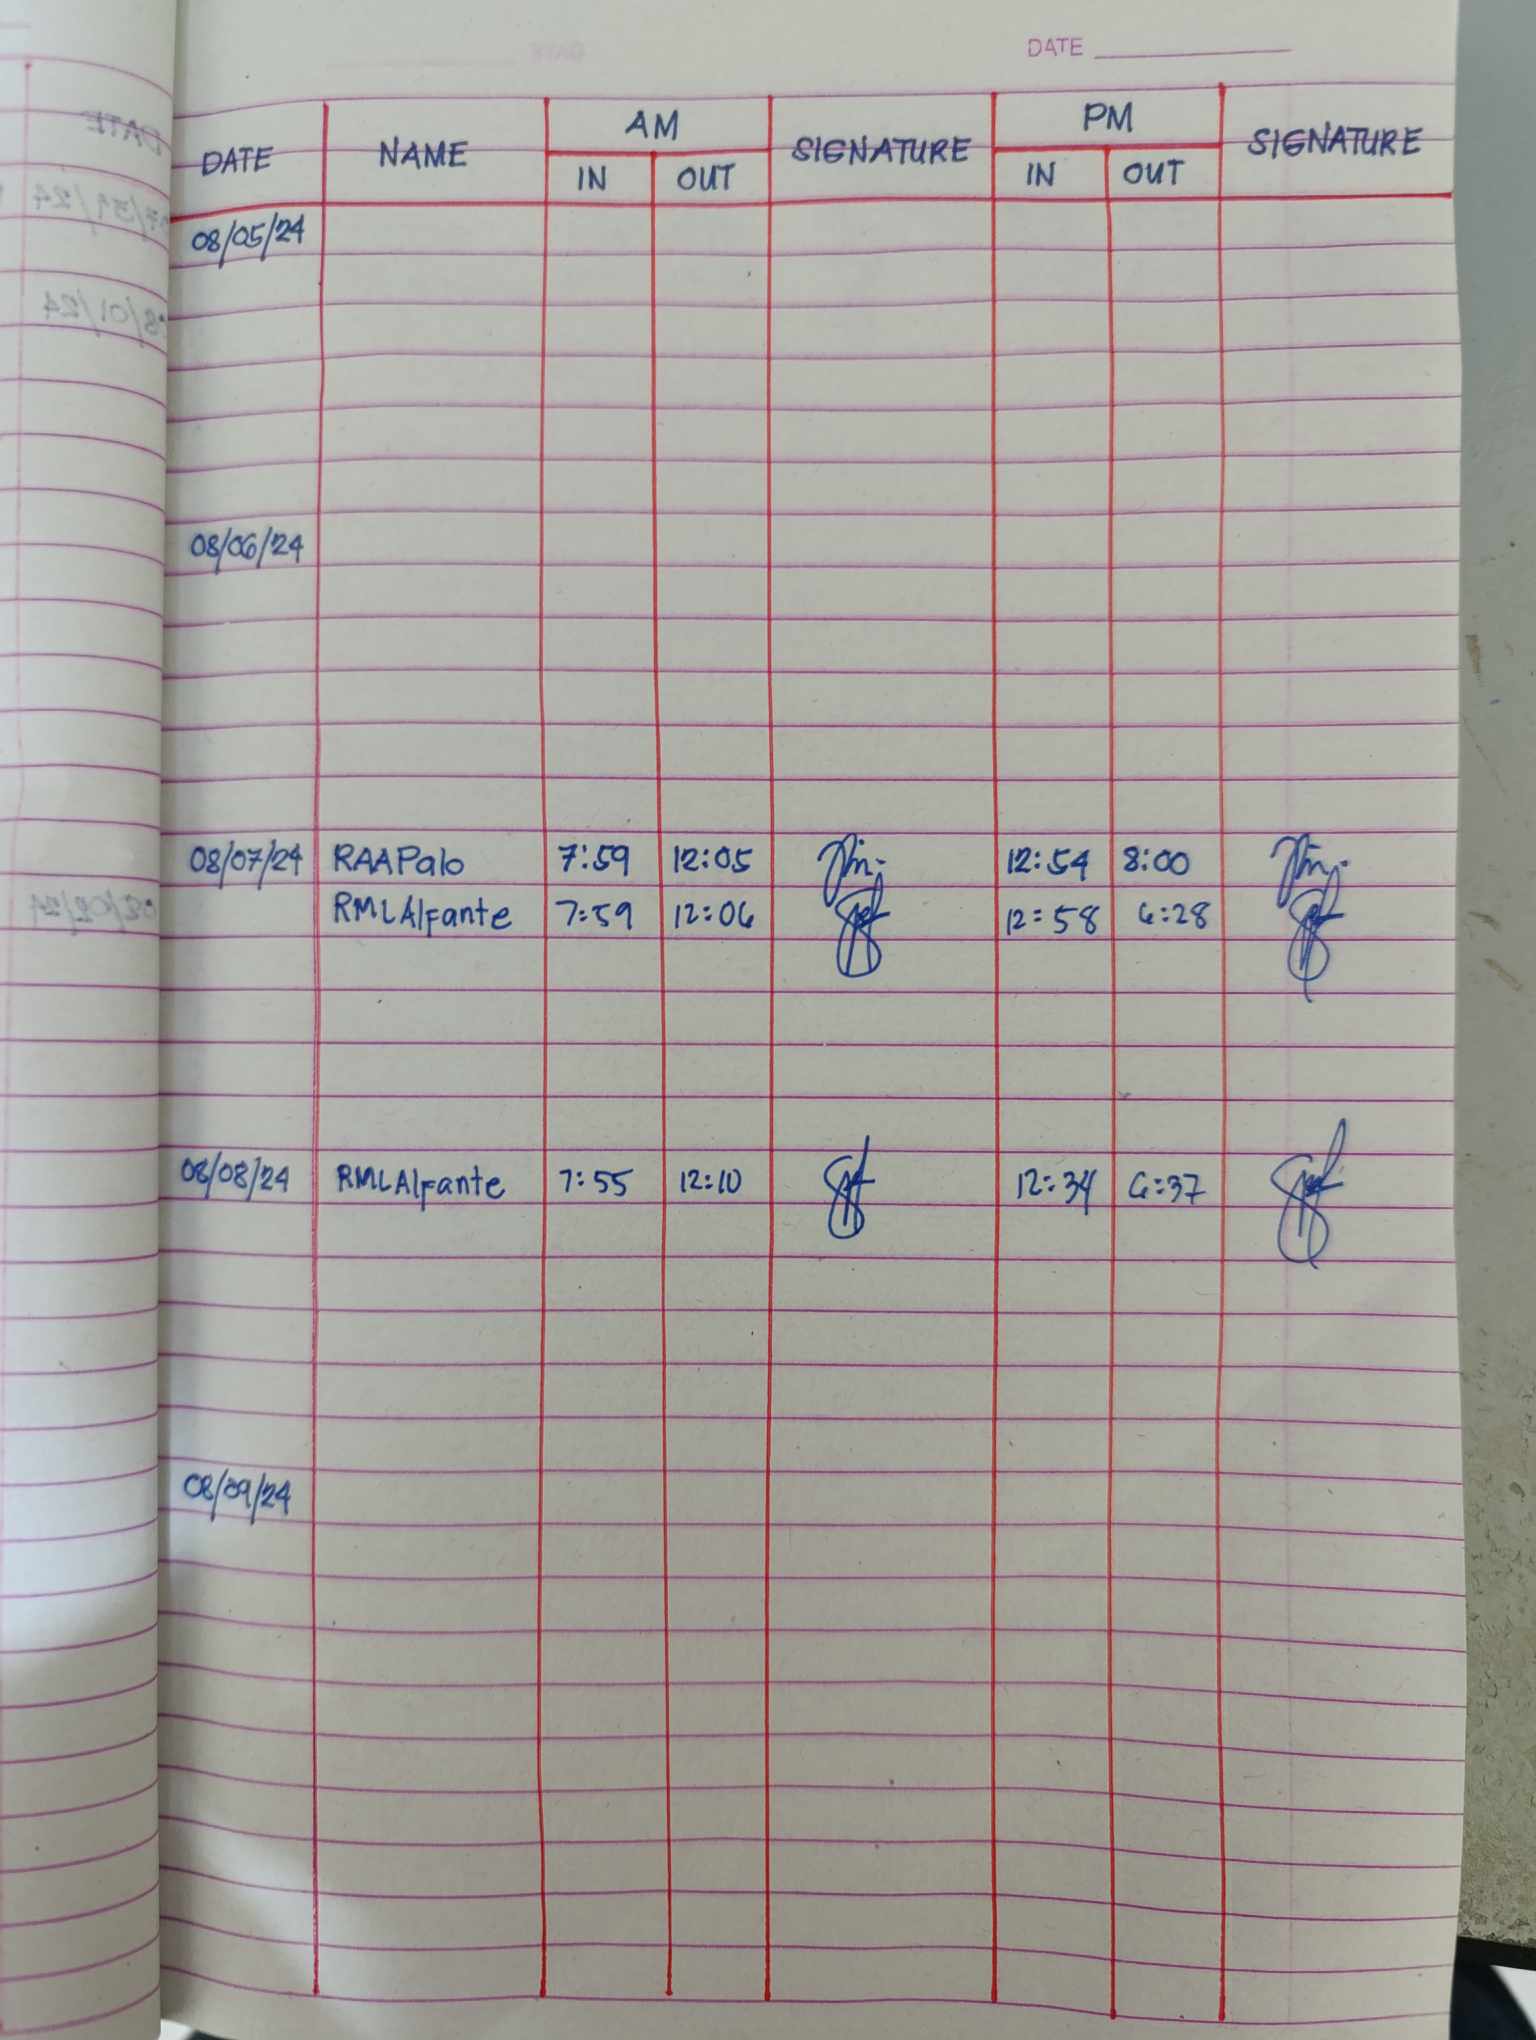 DATE
DATE NAME AM SIGNATURE PM SIGNATURE
IN OUT IN OUT
08/05/24
08/06/24
08/07/24 RAAPalo 7:59 12:05 12:54 8:00
RMLAlfante 7:59 12:06 12:58 6:28
08/08/24 RMLAlfante 7:55 12:10 12:34 6:37
08/09/24